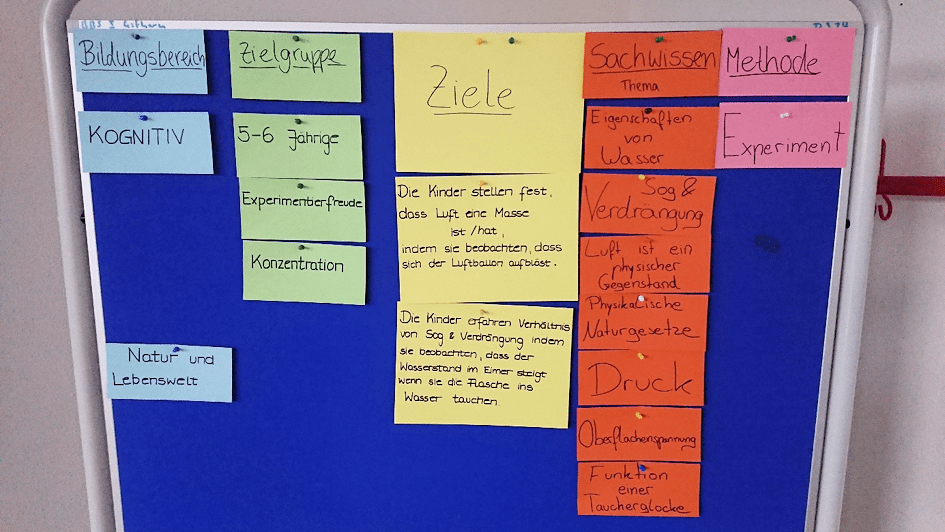 Bildungsbereich
KOGNITIV
Natur und
Lebenswelt
Zielgruppe
5-6 Jährige
Experimentierfreude
Konzentration
Ziele
Die Kinder stellen fest,
dass Luft eine Masse
ist /hat,
indem sie beobachten, dass
sich der Luftballon aufbläst.
Die Kinder erfahren Verhältnis
von Sog & Verdrängung indem
sie beobachten, dass der
Wasserstand im Eimer steigt
wenn sie die Flasche ins
Wasser tauchen.
Sachwissen
Thema
Eigenschaften
von
Wasser
Sog &
Verdrängung
Luft ist ein
physischer
Gegenstand
Physikalische
Naturgesetze
Druck
Oberflächenspannung
Funktion
einer
Taucherglocke
Methode
Experiment